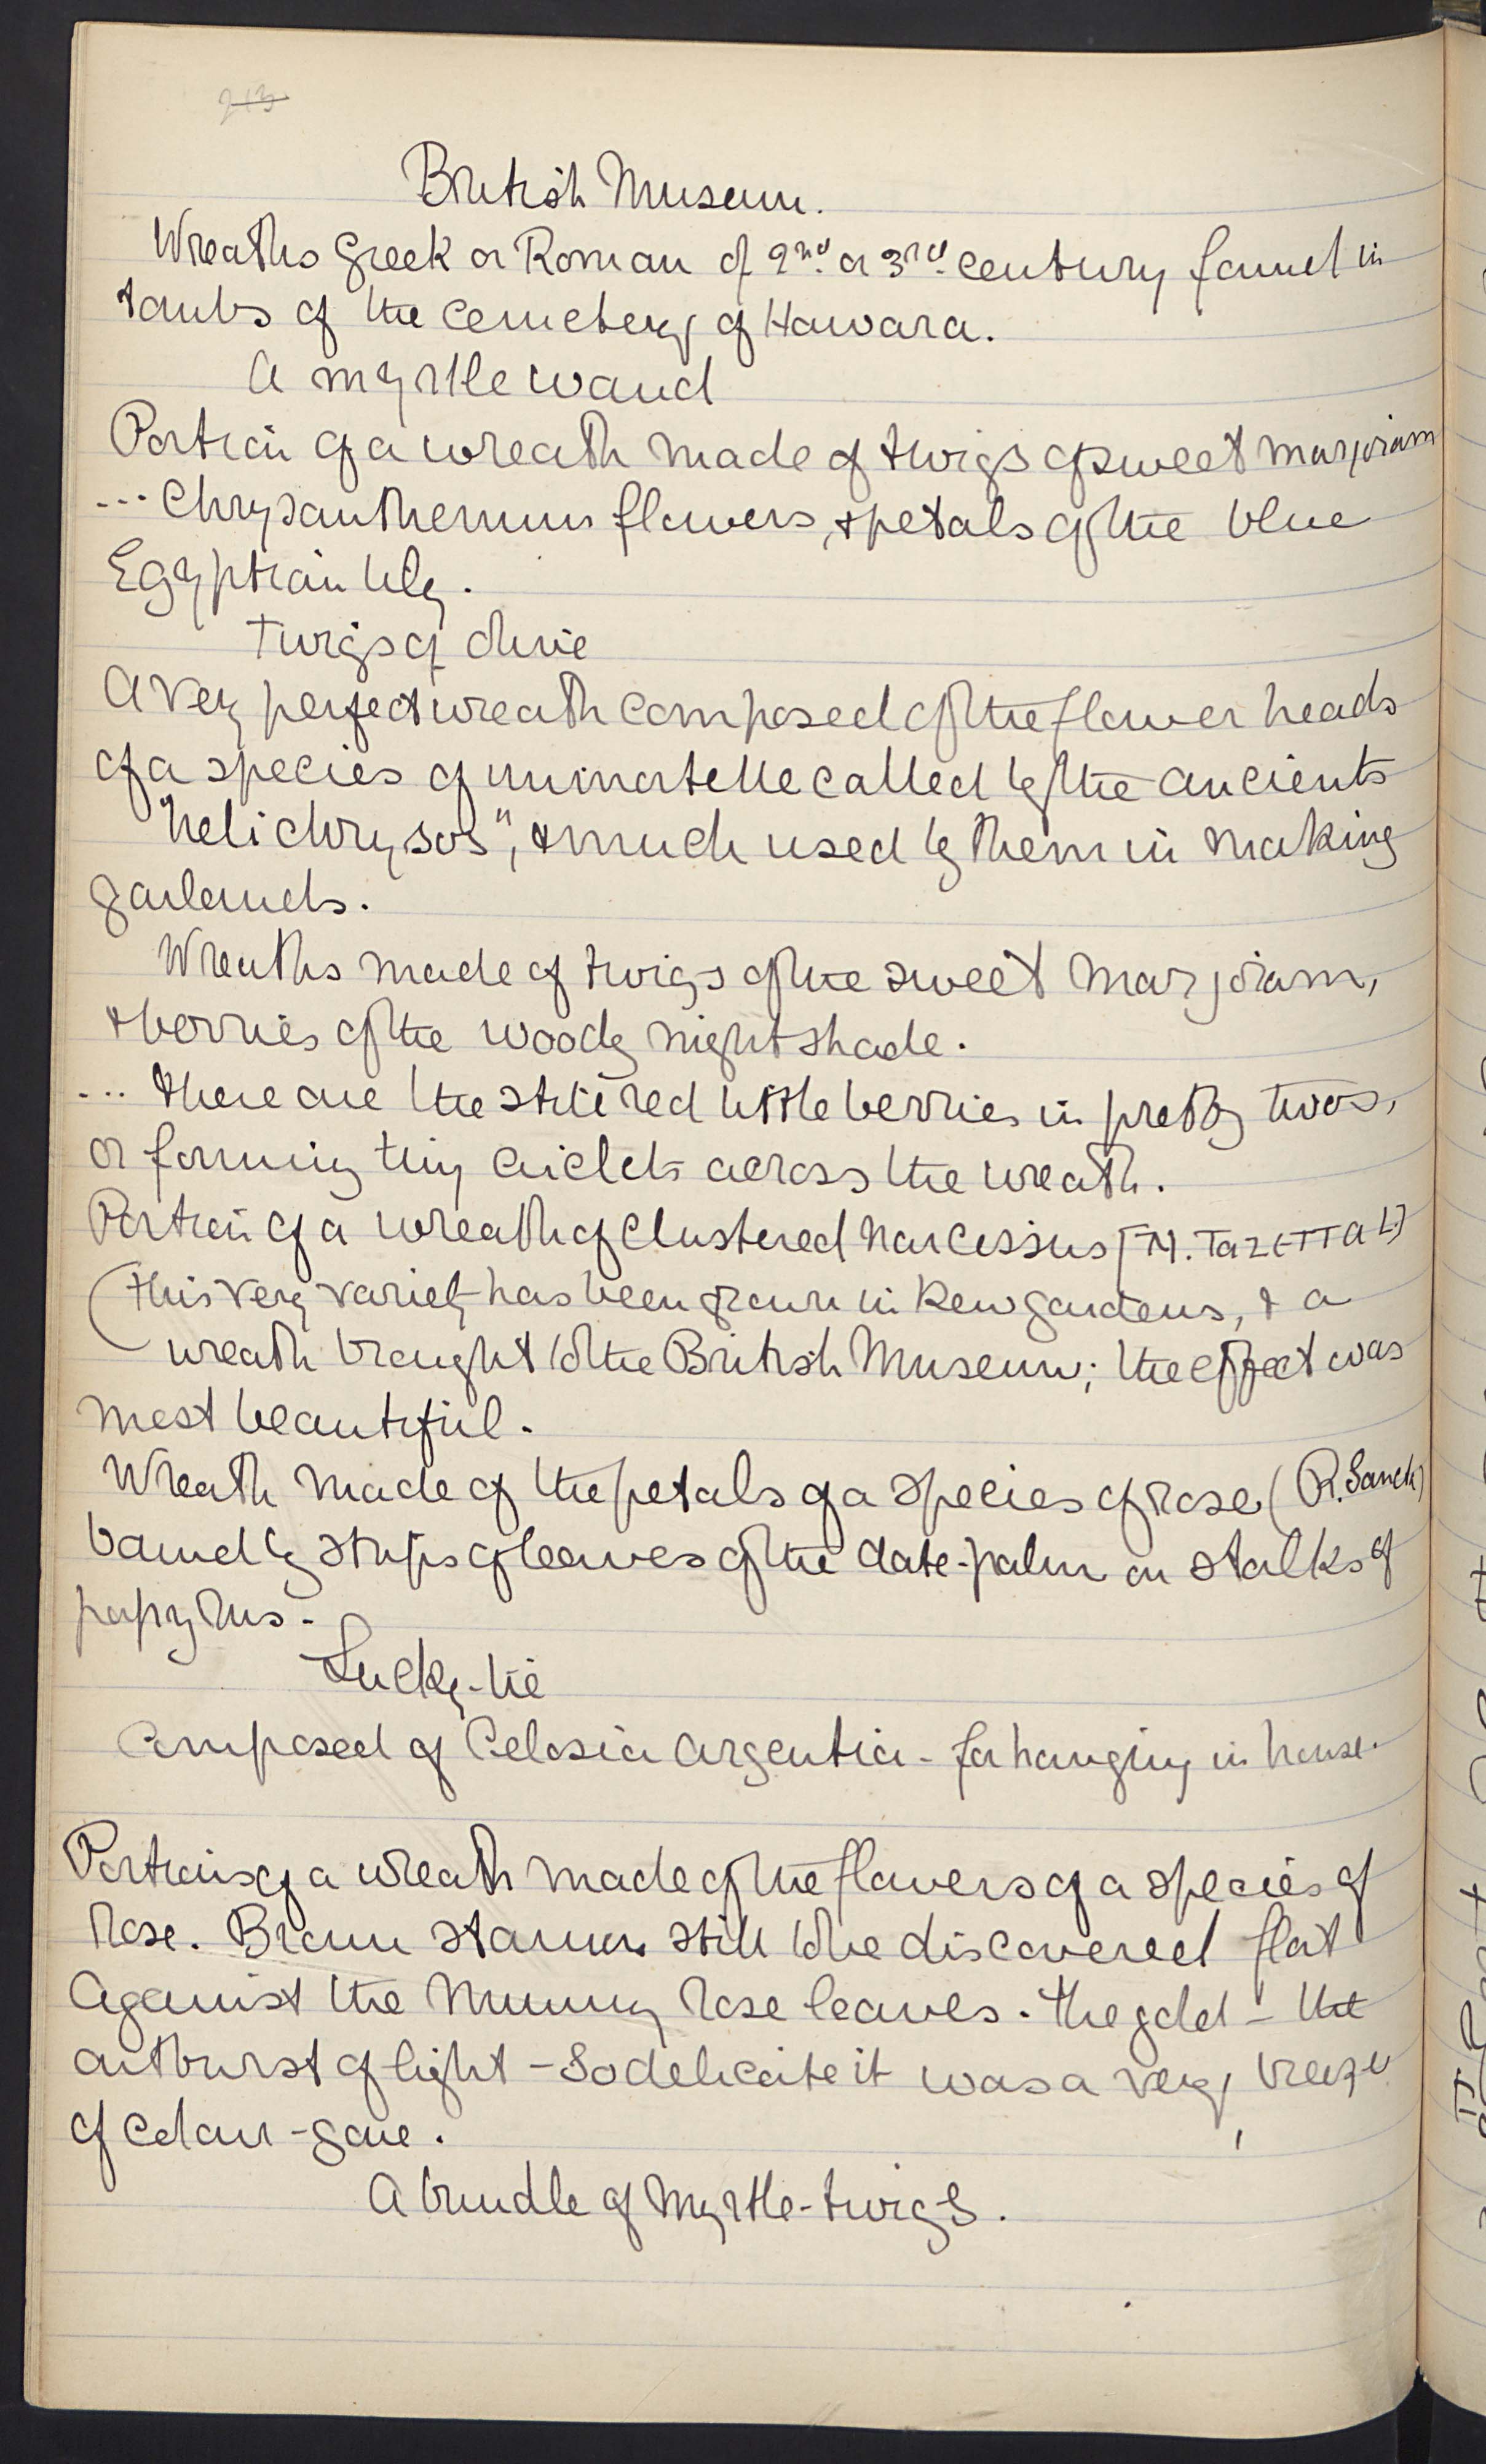 British Museum.
Wreaths Greek or Roman of 2nd or 3rd century found in
tombs of the cemetery of Hawara.
A myrtle wand
Portion of a wreath made of twigs of sweet marjoram
... Chrysanthemum flowers, & petals of the blue
Egyptian lily.
Twigs of olive
A very perfect wreath composed of the flower heads
of a species of immortelle called by the ancients
"helichrysos", & much used by them in making
garlands.
Wreaths made of twigs of the sweet marjoram,
& berries of the woody nightshade.
... there are the still red little berries in pretty twos,
or forming tiny circlets across the wreath.
Portion of a wreath of clustered narcissus [N. Tazetta L]
(this very variety has been grown in Kew gardens, & a
wreath brought to the British Museum; the effect was
most beautiful.
Wreath made of the petals of a species of rose (R. Sanct)
bound by strips of leaves of the date-palm on stalks of
papyrus.
Lucky-tie
Composed of Celosia argentia - for hanging in house.
Portions of a wreath made of the flowers of a species of
Rose. Brown stamens still to be discovered flat
against the mummy rose leaves. The gold - the
outburst of light - so delicate it was a very
of colour - gone.
A bundle of Myrtle-twigs.